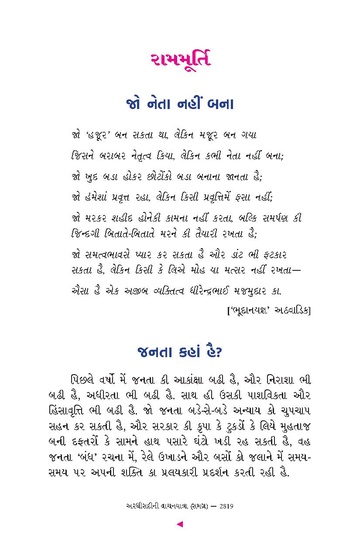 રામમૂર્તિ
જો નેતા નહીં બના
જો 'હજૂર' બન સકતા થા, લેકિન મજૂર બન ગયા
જિસને બરાબર નેતૃત્વ કિયા, લેકિન કભી નેતા નહીં બના;
જો ખુદ બડા હોકર છોટોંકો બડા બનાના જાનતા હૈ;
જો હંમેશાં પ્રવૃત્ત રહા, લેકિન કિસી પ્રવૃત્તિમેં ફસા નહીં;
જો મરકર શહીદ હોનેકી કામના નહીં કરતા, બલ્કિ સમર્પણ કી
જિન્દગી બિતાતે-બિતાતે મરને કી તૈયારી રખતા હૈ;
જો સમત્વભાવસે પ્યાર કર સકતા હૈ ઔર ડાંટ ભી ફટકાર
સકતા હૈ, લેકિન કિસી કે લિએ મોહ યા મત્સર નહીં રખતા—
ઐસા હૈ એક અજીબ વ્યક્તિત્વ ધીરેન્દ્રભાઈ મજમુદાર કા.
['ભૂદાનયજ્ઞ' અઠવાડિક]
જનતા કહાં હૈ?
પિછલે વર્ષો મેં જનતા કી આકાંક્ષા બઢી હૈ, ઔર નિરાશા ભી
બઢી હૈ, અધીરતા ભી બઢી હૈ. સાથ હી ઉસકી પાશવિકતા ઔર
હિંસાવૃત્તિ ભી બઢી હૈ. જો જનતા બડે-સે-બડે અન્યાય કો ચુપચાપ
સહન કર સકતી હૈ, ઔર સરકાર કી કૃપા કે ટુકડોં કે લિયે મુહતાજ
બની દફતરોં કે સામને હાથ પસારે ઘંટો ખડી રહ સકતી હૈ, વહ
જનતા 'બંધ' રચના મેં, રેલે ઉખાડને ઔર બસોં કો જલાને મેં સમય-
સમય પર અપની શક્તિ કા પ્રલયકારી પ્રદર્શન કરતી રહી હૈ.
અરધીસદીની વાચનયાત્રા (સમગ્ર) — 2819